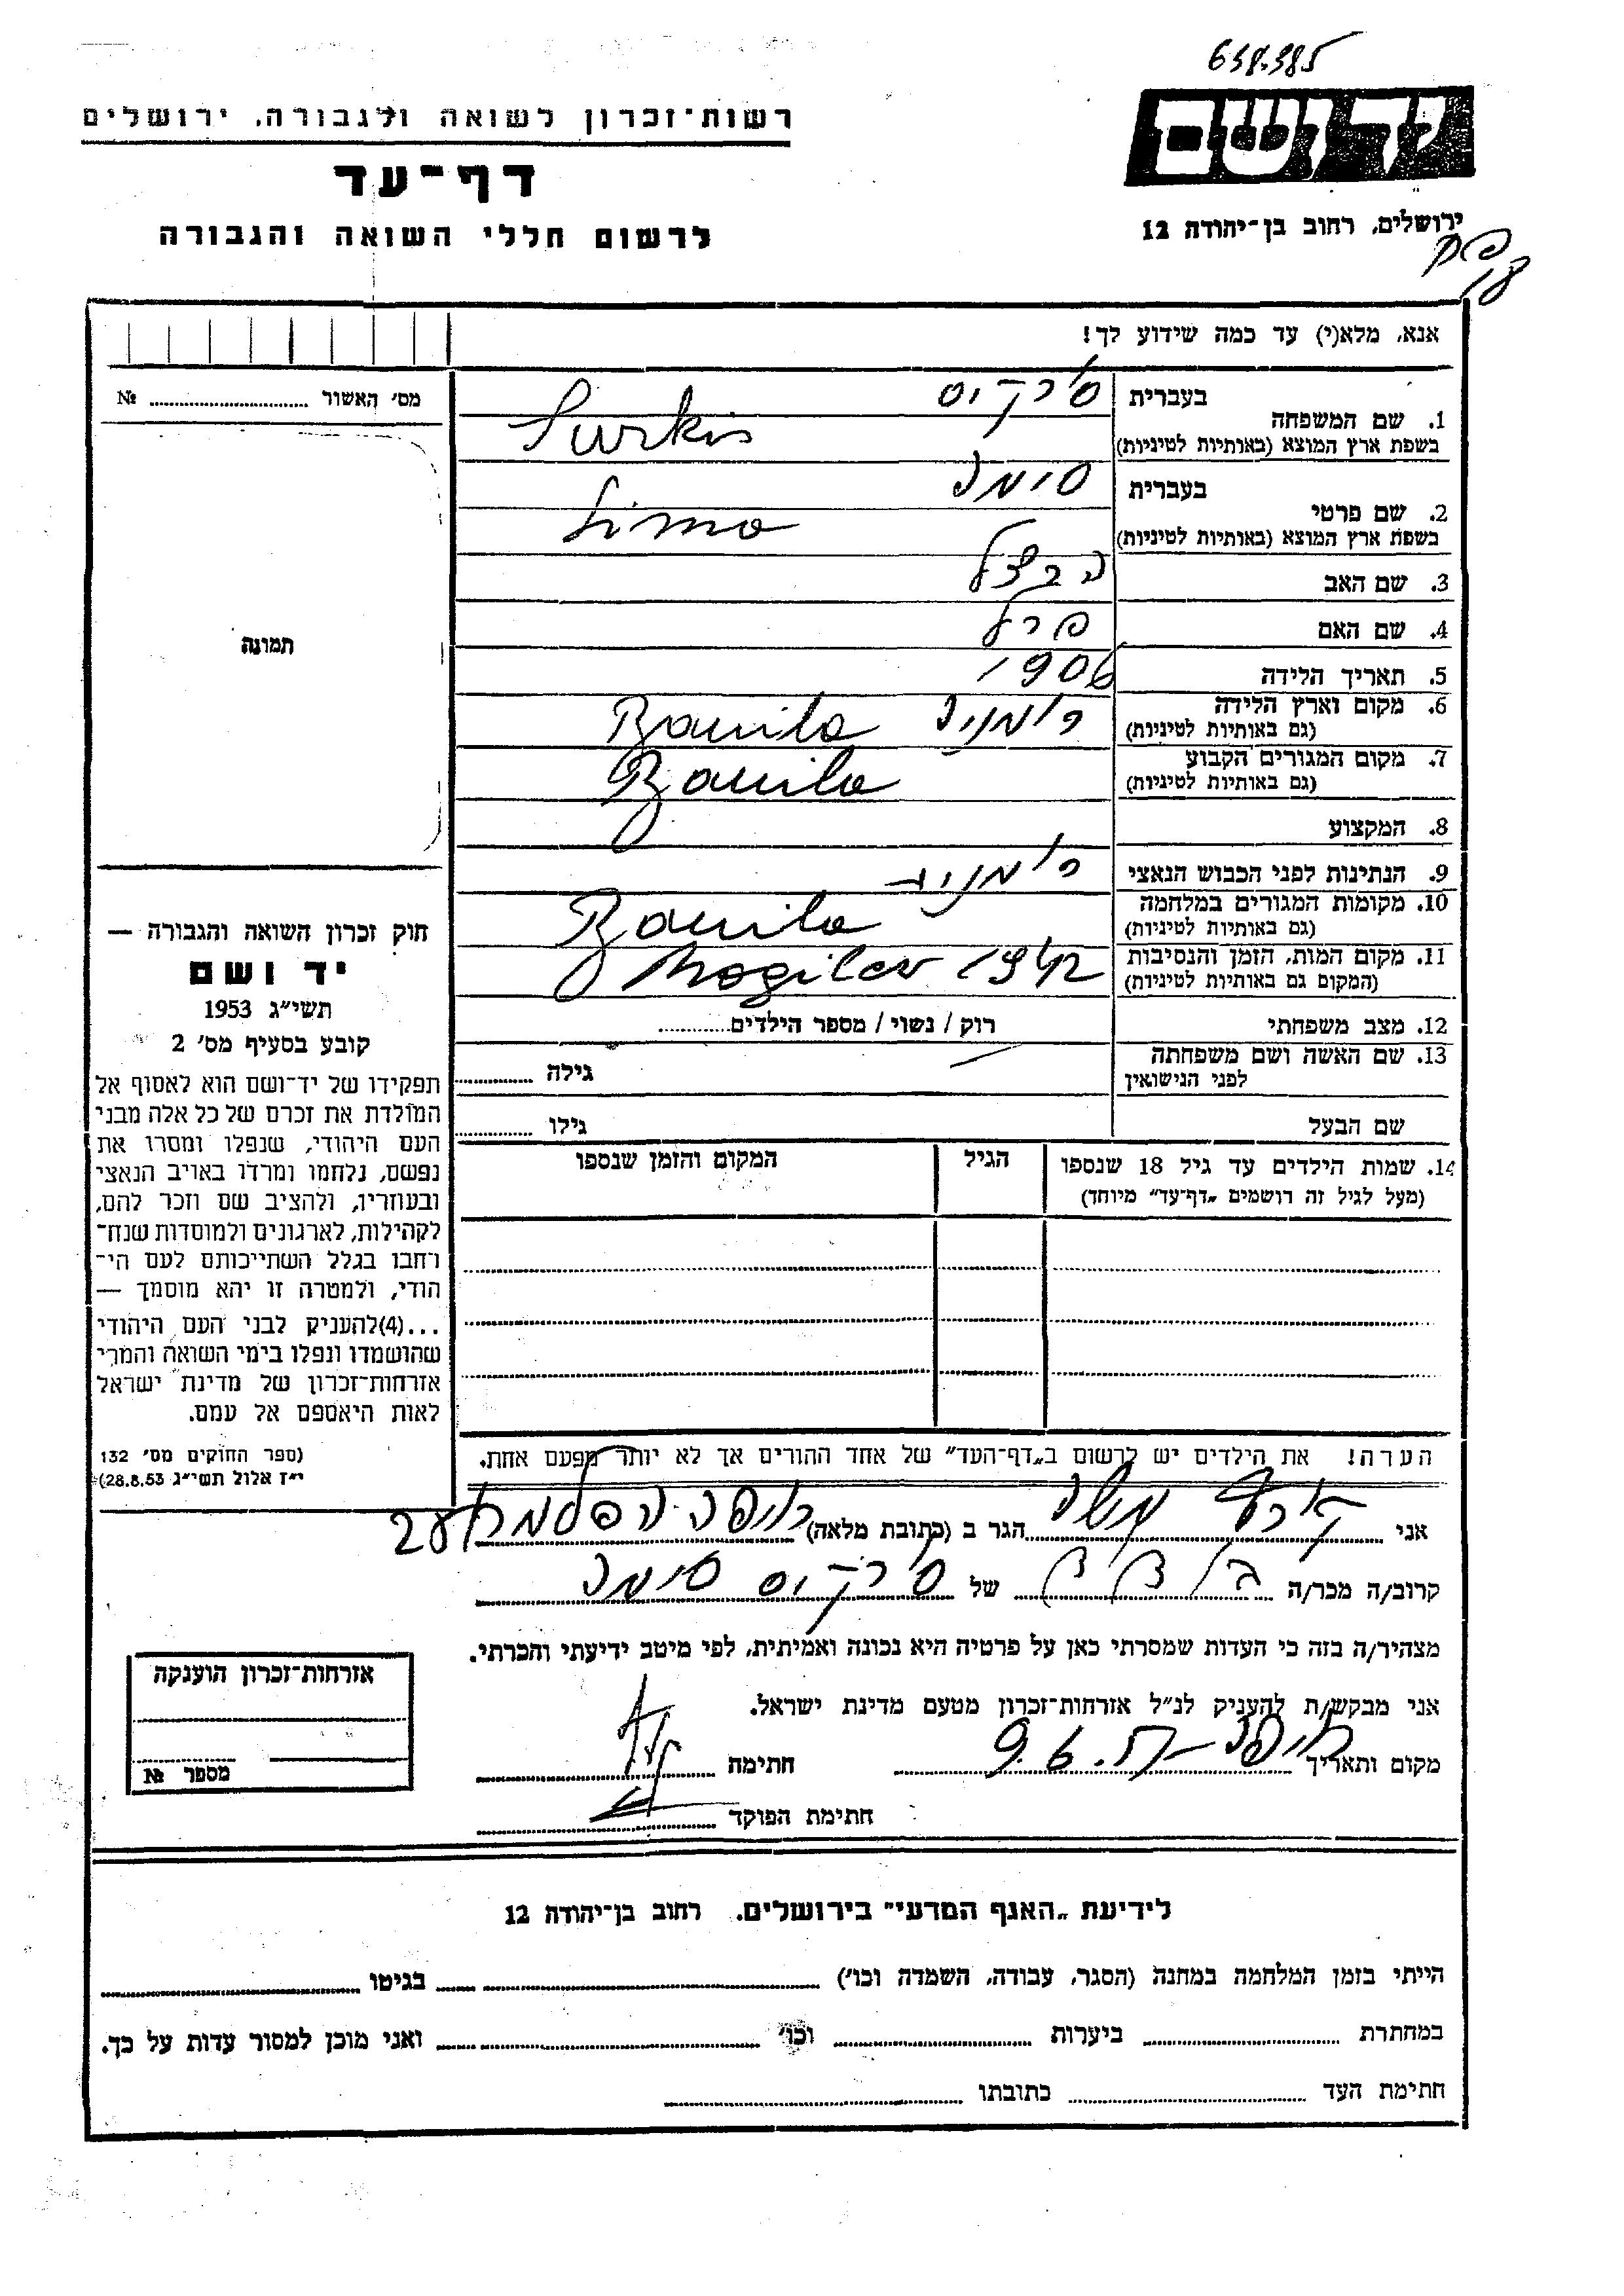 638.385
רשות־זכרון לשואה ולגבורה, ירושלים
יד ושם
דף־עד
לרשום חללי השואה והגבורה
ירושלים, רחוב בן־יהודה 12
אנא, מלא(י) עד כמה שידוע לך!
מס׳ האשור № 
1. שם המשפחה
בעברית סורקיס
בשפת ארץ המוצא (באותיות לטיניות) Surkis
2. שם פרטי
בעברית סימה
בשפת ארץ המוצא (באותיות לטיניות) Sima
3. שם האב הרצל
4. שם האם פרל
5. תאריך הלידה 1906
6. מקום וארץ הלידה רומניה Banila
(גם באותיות לטיניות)
7. מקום המגורים הקבוע Banila
(גם באותיות לטיניות)
8. המקצוע
9. הנתינות לפני הכבוש הנאצי רומניה
10. מקומות המגורים במלחמה Banila
(גם באותיות לטיניות)
11. מקום המות, הזמן והנסיבות Mogilev 1942
(המקום גם באותיות לטיניות)
12. מצב משפחתי רוק / נשוי / מספר הילדים
13. שם האשה ושם משפחתה גילה
לפני הנישואין
שם הבעל גילו
14. שמות הילדים עד גיל 18 שנספו הגיל המקום והזמן שנספו
(מעל לגיל זה רושמים „דף־עד״ מיוחד)
הערה! את הילדים יש לרשום ב„דף־העד״ של אחד ההורים אך לא יותר מפעם אחת.
תמונה
חוק זכרון השואה והגבורה —
יד ושם
תשי״ג 1953
קובע בסעיף מס׳ 2
תפקידו של יד־ושם הוא לאסוף אל
המולדת את זכרם של כל אלה מבני
העם היהודי, שנפלו ומסרו את
נפשם, נלחמו ומרדו באויב הנאצי
ובעוזריו, ולהציב שם וזכר להם,
לקהילות, לארגונים ולמוסדות שנח־
רחבו בגלל השתייכותם לעם הי־
הודי, ולמטרה זו יהא מוסמך —
...(4)להעניק לבני העם היהודי
שהושמדו ונפלו בימי השואה והמרי
אזרחות־זכרון של מדינת ישראל
לאות היאספם אל עמם.
(ספר החוקים מס׳ 132
י״ז אלול תשי״ג 28.8.53)
אני משה הגר ב (כתובת מלאה) חיפה
קרוב/ה מכר/ה בן דוד של סורקיס סימה
מצהיר/ה בזה כי העדות שמסרתי כאן על פרטיה היא נכונה ואמיתית, לפי מיטב ידיעתי והכרתי.
אני מבקש/ת להעניק לנ״ל אזרחות־זכרון מטעם מדינת ישראל.
מקום ותאריך חיפה חתימה
חתימת הפוקד
אזרחות־זכרון הוענקה
מספר №
לידיעת „האגף המדעי״ בירושלים, רחוב בן־יהודה 12
הייתי בזמן המלחמה במחנה (הסגר, עבודה, השמדה וכו׳) בגיטו
במחתרת ביערות וכו׳ ואני מוכן למסור עדות על כך.
חתימת העד כתובתו